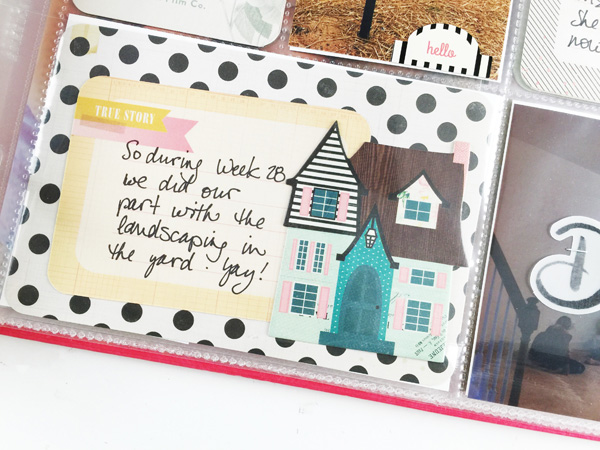 Film Co.
hello
She
TRUE STORY
So during Week 28
we did our
part with the
landscaping in
the yard. yay!
D